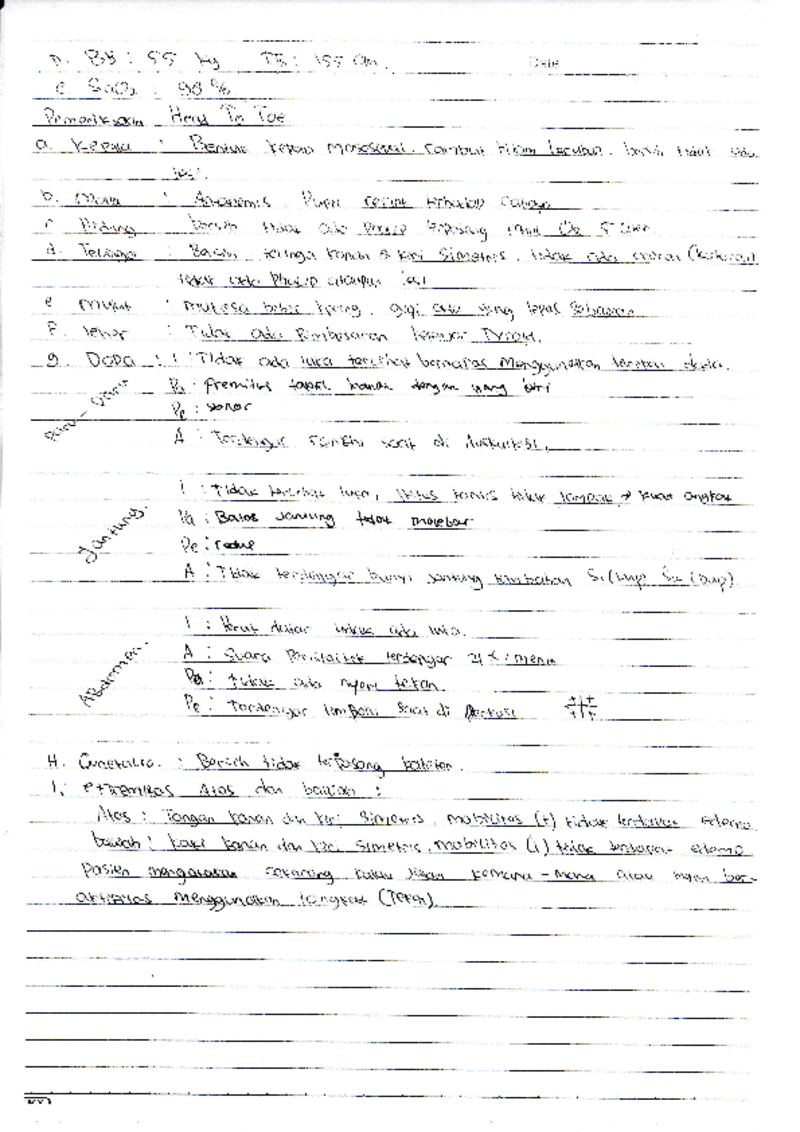 D. BB : 55 kg TB : 155 cm. Date
e SaO2 : 98 %
Pemeriksaan Head To Toe
a. Kepala : Bentuk kepala mesosepal. rambut hitam beruban. bersih tidak ada
lesi.
b. Mata : Ananemis, Pupil terhadap cahaya
c. Hidung : bersih tidak ada Polip terpasang O2 5 liter
d. Telinga : Bersih, telinga kanan & kiri Simetris, tidak ada cairan (kotoran)
tidak ada Pholip ataupun lesi
e mulut : mukosa bibir kering, gigi ada yang lepas Sebagian
F. leher : Tidak ada Pembesaran kelenjar Tyroid.
g. DADA : I : Tidak ada luka terlihat bernafas Menggunakan
Paru - Paru Pa : fremitus kanan dengan yang kiri
Pe : sonor
A : Terdengar ronkhi saat di Auskultasi.
Jantung. I : Tidak terlihat luka, Iktus kordis tidak tampak → kuat angkat
Pa : Batas Jantung tidak melebar
Pe : redup
A : Tidak terdengar bunyi jantung tambahan S1 (Lup) S2 (Dup)
Abdomen. I : Perut datar tidak ada luka.
A : Suara Peristaltik terdengar 21 x / menit
Pa : tidak ada nyeri tekan
Pe : Terdengar timpani Saat di Perkusi
H. Genetalia : Bersih tidak terpasang kateter.
I. extremitas Atas dan bawah :
Atas : Tangan kanan dan kiri Simetris, mobilitas (+) tidak terdapat edema.
bawah : kaki kanan dan kiri Simetris, mobilitas (+) tidak terdapat edema
Pasien mengatakan sekarang kalau jalan kemana - mana atau ingin ber-
aktifitas menggunakan tongkat (Teken).